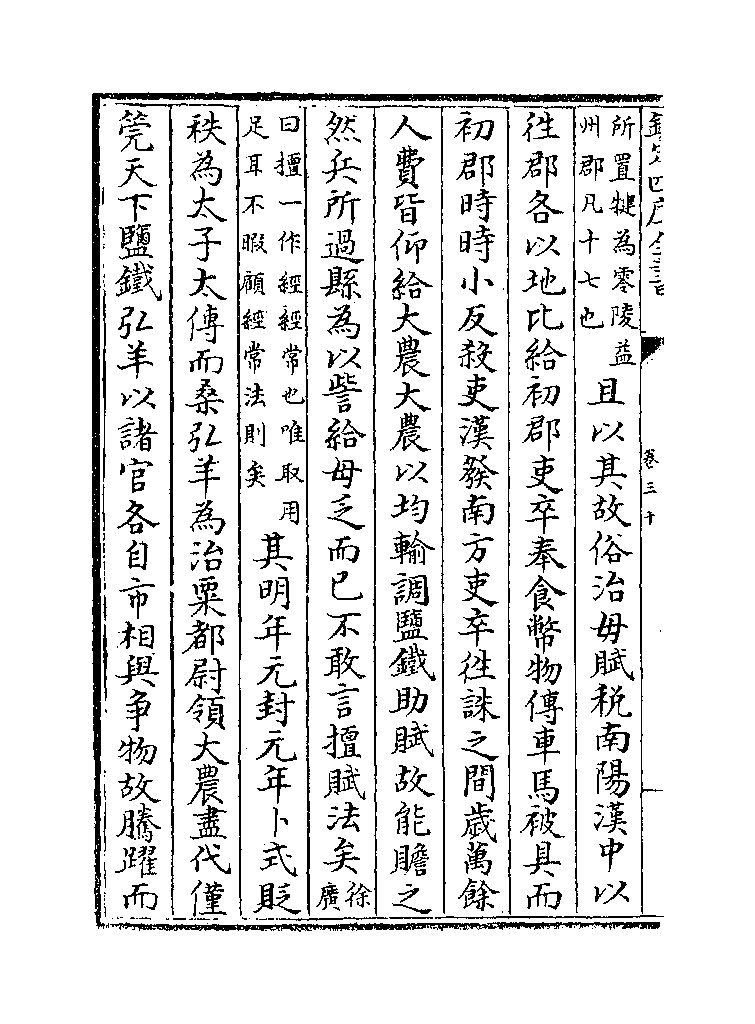 欽定四庫全書
卷三十
所置犍為零陵益
州郡凡十七也
且以其故俗治毋賦税南陽漢中以
徃郡各以地比給初郡吏卒奉食幣物傳車馬被具而
初郡時時小反殺吏漢發南方吏卒徃誅之間歲萬餘
人費皆仰給大農大農以均輸調鹽鐵助賦故能贍之
然兵所過縣為以訾給毋乏而已不敢言擅賦法矣
徐
廣
曰擅一作經經常也唯取用
足耳不暇顧經常法則矣
其明年元封元年卜式貶
秩為太子太傅而桑弘羊為治粟都尉領大農盡代僅
筦天下鹽鐵弘羊以諸官各自市相與争物故騰躍而